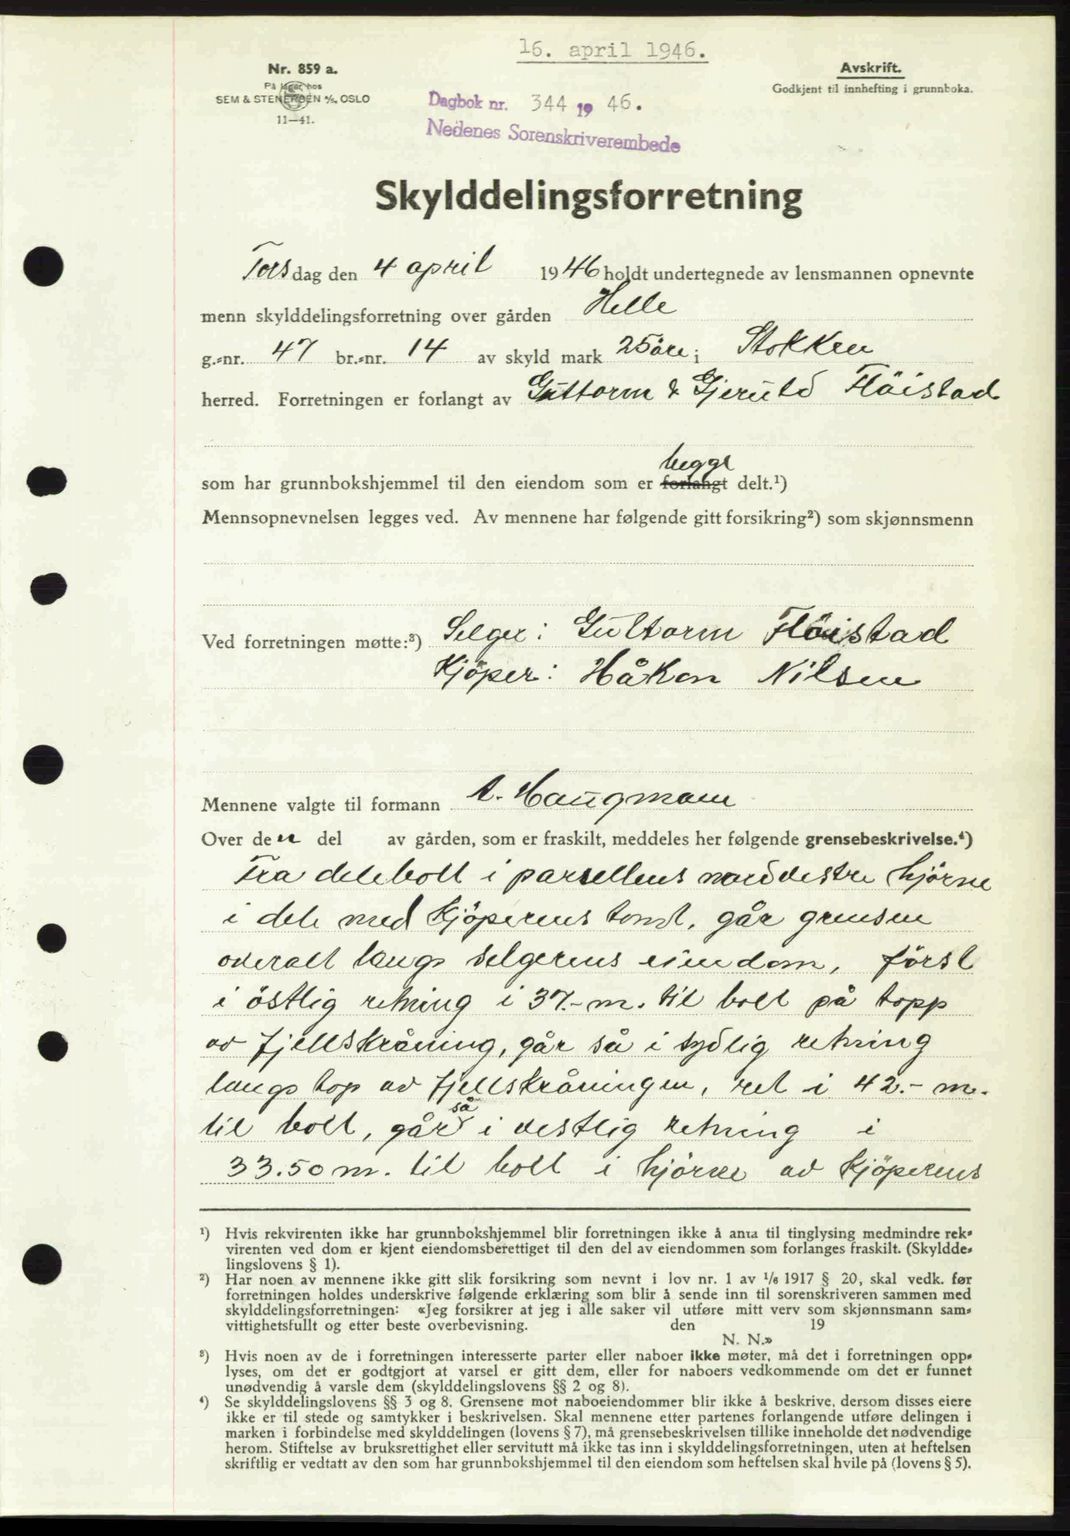 16. april 1946.
Nr. 859 a.
På lager hos
SEM & STENERSEN A/S, OSLO
11—41.
Avskrift.
Godkjent til innhefting i grunnboka.
Dagbok nr. 344 19 46.
Nedenes Sorenskriverembede
Skylddelingsforretning
Torsdag den 4 april 1946 holdt undertegnede av lensmannen opnevnte
menn skylddelingsforretning over gården Helle
g.-nr. 47 br.-nr. 14 av skyld mark 25 öre i Stokken
herred. Forretningen er forlangt av Guttorm & Gjerulo Flöistad
som har grunnbokshjemmel til den eiendom som er forlangt begge delt.¹)
Mennsopnevnelsen legges ved. Av mennene har følgende gitt forsikring²) som skjønnsmenn
Ved forretningen møtte:³) Selger: Guttorm Flöistad
Kjöper: Håkon Nilsen
Mennene valgte til formann A. Haugmann
Over den del av gården, som er fraskilt, meddeles her følgende grensebeskrivelse.⁴)
Fra delebolt i parsellens nordvestre hjörne
i dele med Kjöperens tomt, går grensen
overalt langs selgerens eiendom, först
i östlig retning i 37.- m. til bolt på topp
av fjellskråning, går så i sydlig retning
langs top av fjellskråningen, ret i 42.- m.
til bolt, går så i vestlig retning i
33.50 m. til bolt i hjörne av Kjöperens
¹) Hvis rekvirenten ikke har grunnbokshjemmel blir forretningen ikke å anta til tinglysing medmindre rek-
virenten ved dom er kjent eiendomsberettiget til den del av eiendommen som forlanges fraskilt. (Skyldde-
lingslovens § 1).
²) Har noen av mennene ikke gitt slik forsikring som nevnt i lov nr. 1 av 1/6 1917 § 20, skal vedk. før
forretningen holdes underskrive følgende erklæring som blir å sende inn til sorenskriveren sammen med
skylddelingsforretningen: «Jeg forsikrer at jeg i alle saker vil utføre mitt verv som skjønnsmann sam-
vittighetsfullt og etter beste overbevisning. den 19
N. N.»
³) Hvis noen av de i forretningen interesserte parter eller naboer ikke møter, må det i forretningen opp-
lyses, om det er godtgjort at varsel er gitt dem, eller for naboers vedkommende om det er funnet
unødvendig å varsle dem (skylddelingslovens §§ 2 og 8).
⁴) Se skylddelingslovens §§ 3 og 8. Grensene mot naboeiendommer blir ikke å beskrive, dersom disses eiere
ikke er til stede og samtykker i beskrivelsen. Skal mennene etter partenes forlangende utføre delingen i
marken i forbindelse med skylddelingen (lovens § 7), må grensebeskrivelsen tillike inneholde det nødvendige
herom. Stiftelse av bruksrettighet eller servitutt må ikke tas inn i skylddelingsforretningen, uten at heftelsen
skriftlig er vedtatt av den som har grunnbokshjemmel til den eiendom som heftelsen skal hvile på (lovens § 5).